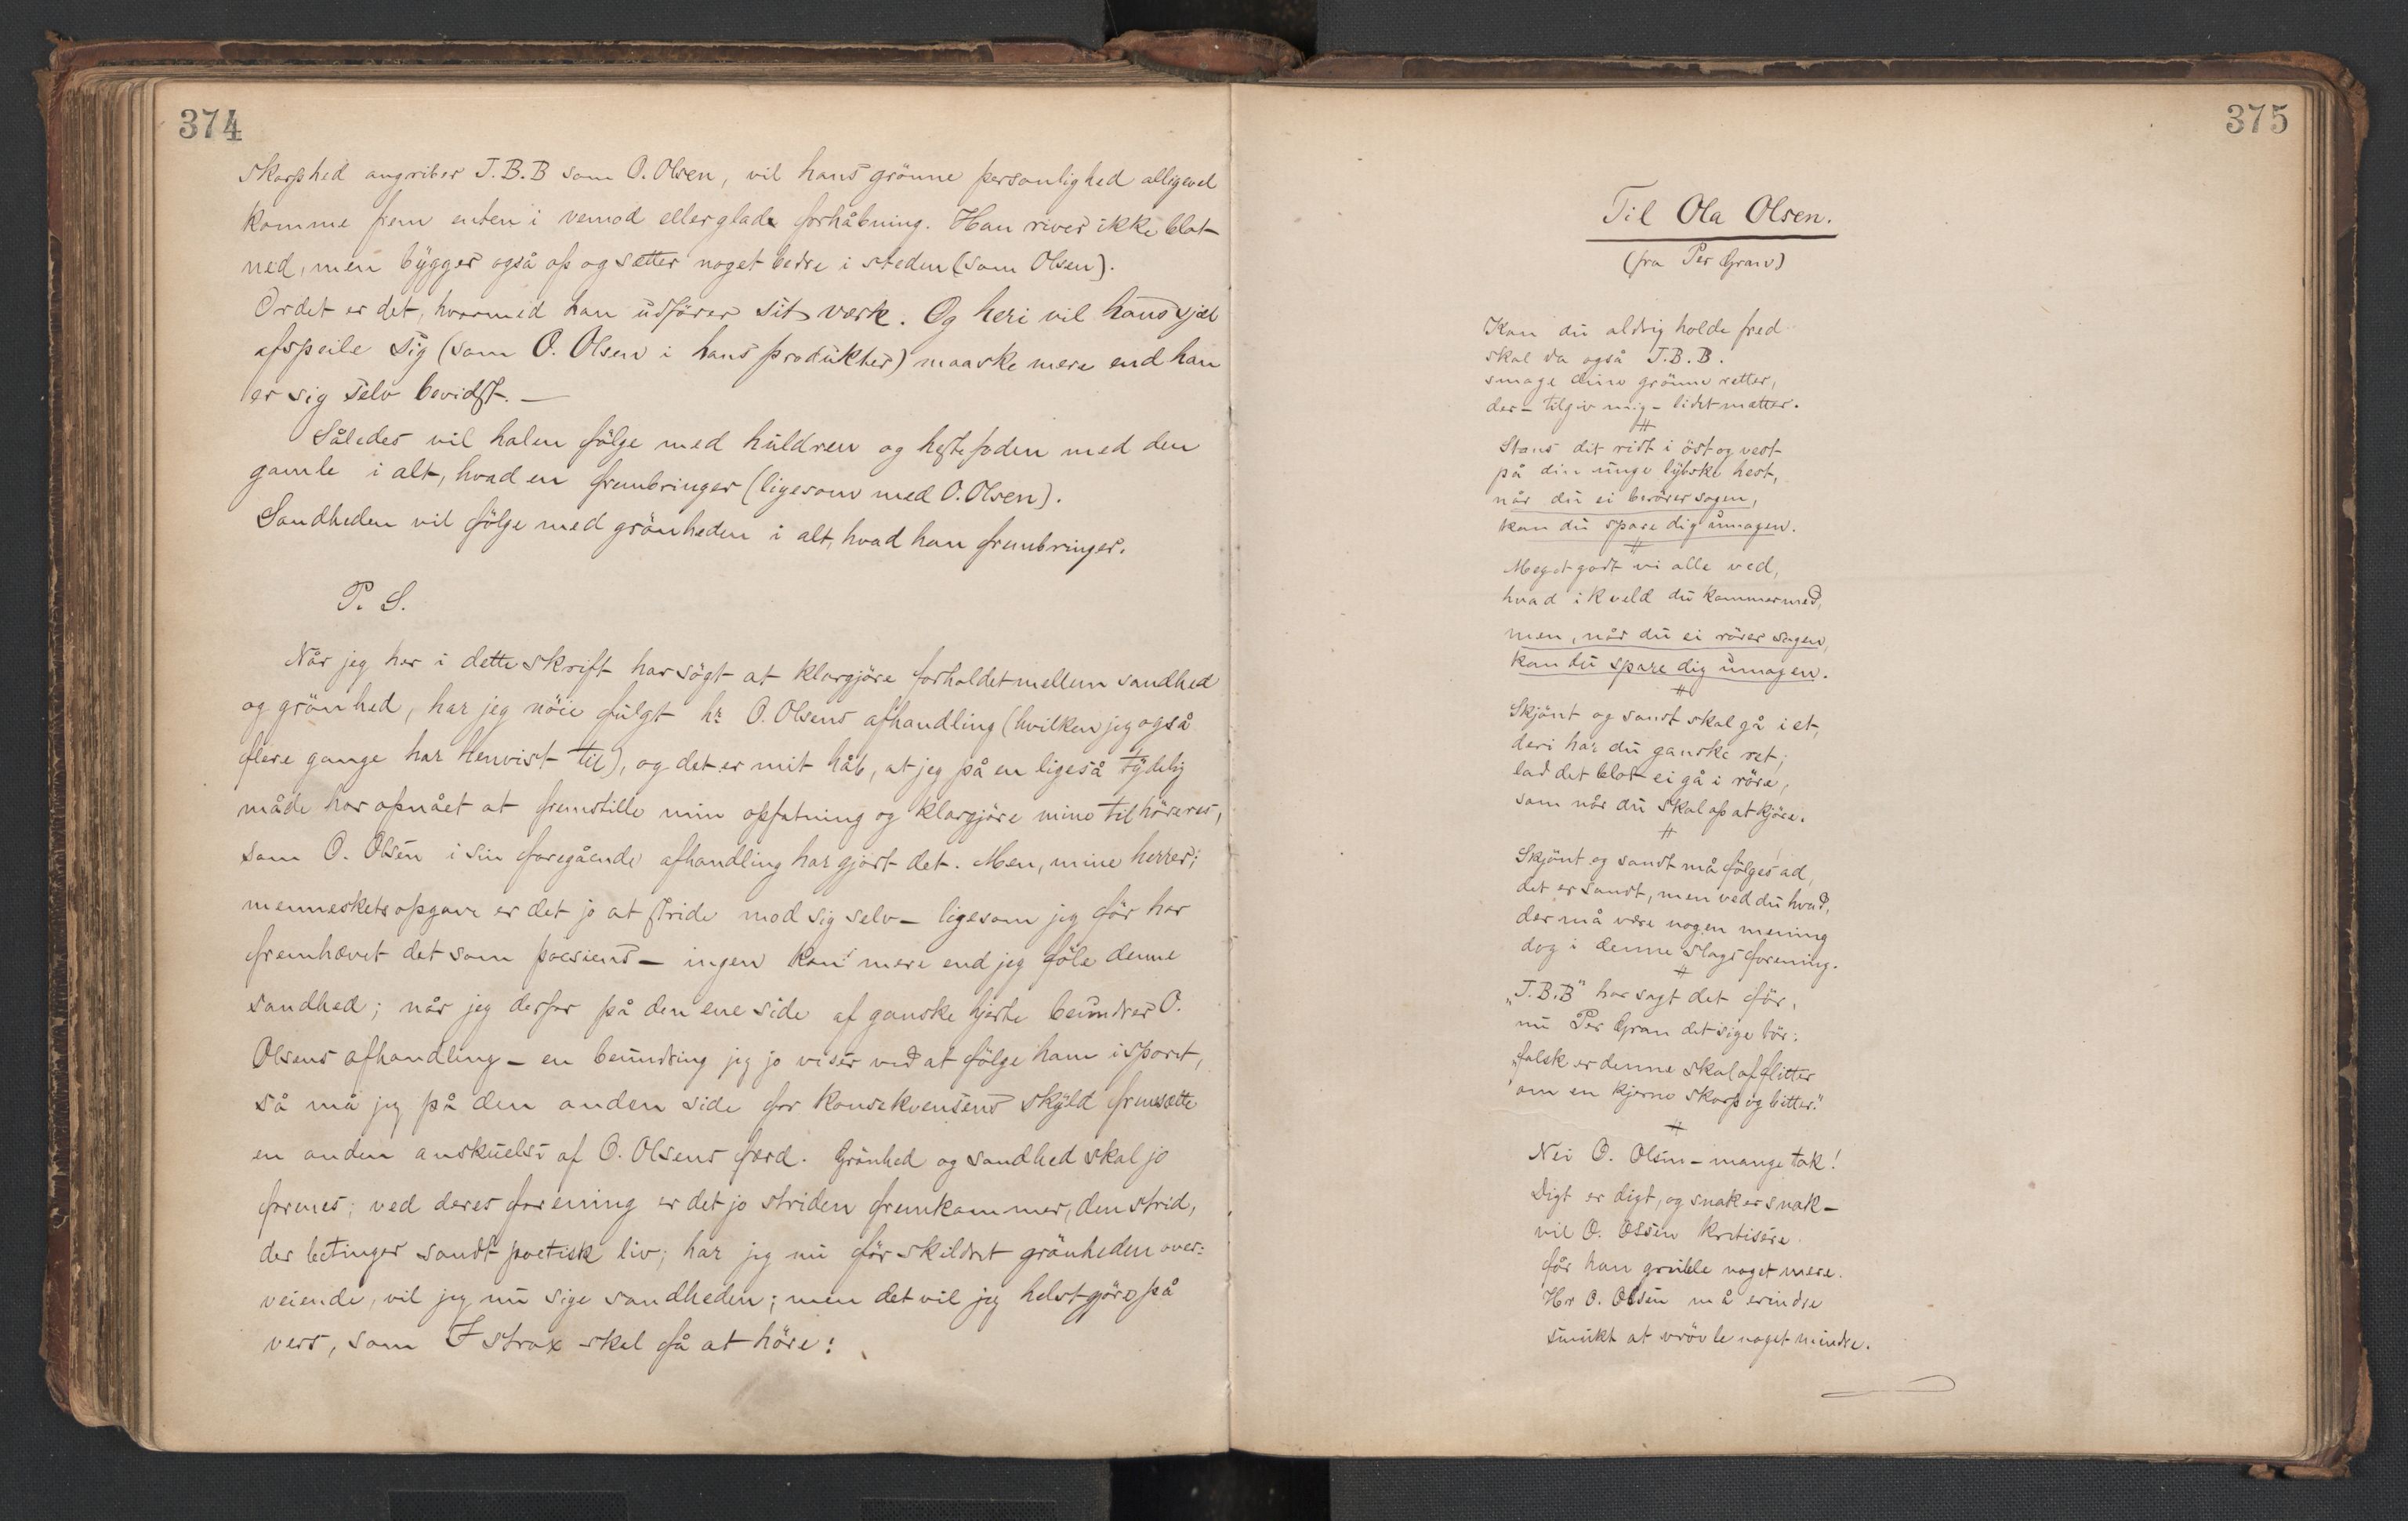 374
skarphed angriber J.B.B som O. Olsen, vil hans grönne personlighed alligevel
komme frem enten i vemod eller glade forhåbning. Han river ikke blot
ned, men bygger også op og sætter noget bedre i steden (som Olsen).
Ordet er det, hvormed han udfører sit værk. Og heri vil hans sjæl
afspeile sig (som O. Olsen i hans produkter) maaske mere end han
er sig selv bevidst. —
Således vil halen fölge med huldren og hestefoden med den
gamle i alt, hvad en frembringer (ligesom med O. Olsen).
Sandheden vil fölge med grönheden i alt, hvad han frembringer.
P. S.
Når jeg her i dette skrift har sögt at klargjöre forholdet mellem sandhed
og grönhed, har jeg nöie fulgt hr O. Olsens afhandling (hvilken jeg også
flere gange har henvist til), og det er mit håb, at jeg på en ligeså tydelig
måde har opnået at fremstille min opfatning og klargjöre mine tilhöreres,
som O. Olsen i sin foregående afhandling har gjort det. Men, mine herrer;
menneskets opgave er det jo at stride mod sig selv – ligesom jeg för har
fremhævet det som poesiens – ingen kan mere end jeg föle denne
sandhed; når jeg derfor på den ene side af ganske hjerte beundrer O.
Olsens afhandling – en beundring jeg jo viser ved at fölge ham i sporet,
så må jeg på den anden side for konsekvensens skyld fremsætte
en anden anskuelse af O. Olsens færd. Grönhed og sandhed skal jo
forenes; ved deres forening er det jo striden fremkommer, den strid,
der betinger sandt poetisk liv; har jeg nu för skildret grönheden over:
veiende, vil jeg nu sige sandheden; men det vil jeg helst gjöre på
vers, som I strax skal få at höre:
375
Til Ola Olsen.
(fra Per Gran)
Kan du aldrig holde fred
skal da også J.B.B.
smage dine grönne retter,
der – tilgiv mig – lidet mætter.
#
Stans dit ridt i öst og vest
på din unge lybske hest,
når du ei berörer sagen,
kan du spare dig umagen.
#
Meget godt vi alle ved,
hvad i kveld du kommer med,
men, når du ei rörer sagen,
kan du spare dig umagen.
#
Skjönt og sandt skal gå i et,
deri har du ganske ret;
lad det blot ei gå i röre,
som når du skal op at kjöre.
#
Skjönt og sandt må fölges ad,
det er sandt, men ved du hvad,
der må være nogen mening
dog i denne slags forening.
#
„J.B.B" har sagt det för,
nu Per Gran det sige bör:
„falsk er denne skal af flitter
om en kjerne skarp og bitter."
#
Nei O. Olsen – mange tak!
Digt er digt, og snak er snak –
vil O. Olsen kritisere
får han gruble noget mere.
Hr O. Olsen må erindre
smukt at vrövle noget mindre.